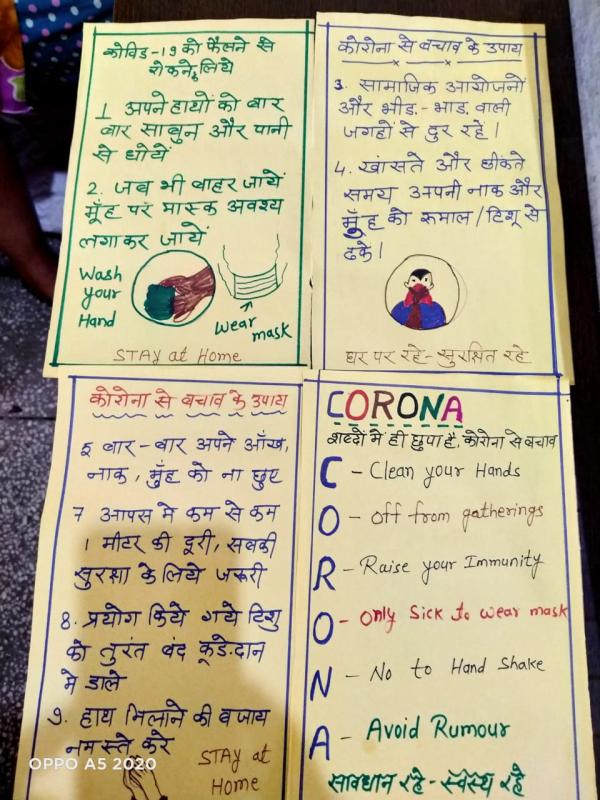 कोविड-19 को फैलने से
रोकने के लिये
1 अपने हाथों को बार
बार साबुन और पानी
से धोयें
2. जब भी बाहर जायें
मूँह पर मास्क अवश्य
लगा कर जायें
Wash
your
Hand
Wear
mask
STAY at Home
कोरोना से बचाव के उपाय
3. सामाजिक आयोजनों
और भीड़-भाड़ वाली
जगहों से दुर रहें।
4. खांसते और छींकते
समय अपनी नाक और
मूँह को रूमाल/टिशू से
ढकें।
घर पर रहे-सुरक्षित रहे
कोरोना से बचाव के उपाय
5 बार-बार अपने आँख,
नाक, मुँह को ना छुए
7 आपस मे कम से कम
1 मीटर की दूरी, सबकी
सुरक्षा के लिये जरूरी
8. प्रयोग किये गये टिशु
को तुरंत बंद कूडे.दान
मे डाले
9. हाथ मिलाने की बजाय
नमस्ते करे
STAY at
Home
CORONA
शब्दों में ही छुपा है, कोरोना से बचाव
C - Clean your Hands
O - Off from gatherings
R - Raise your Immunity
O - Only Sick to wear mask
N - No to Hand Shake
A - Avoid Rumour
सावधान रहे - स्वस्थ रहे
OPPO A5 2020